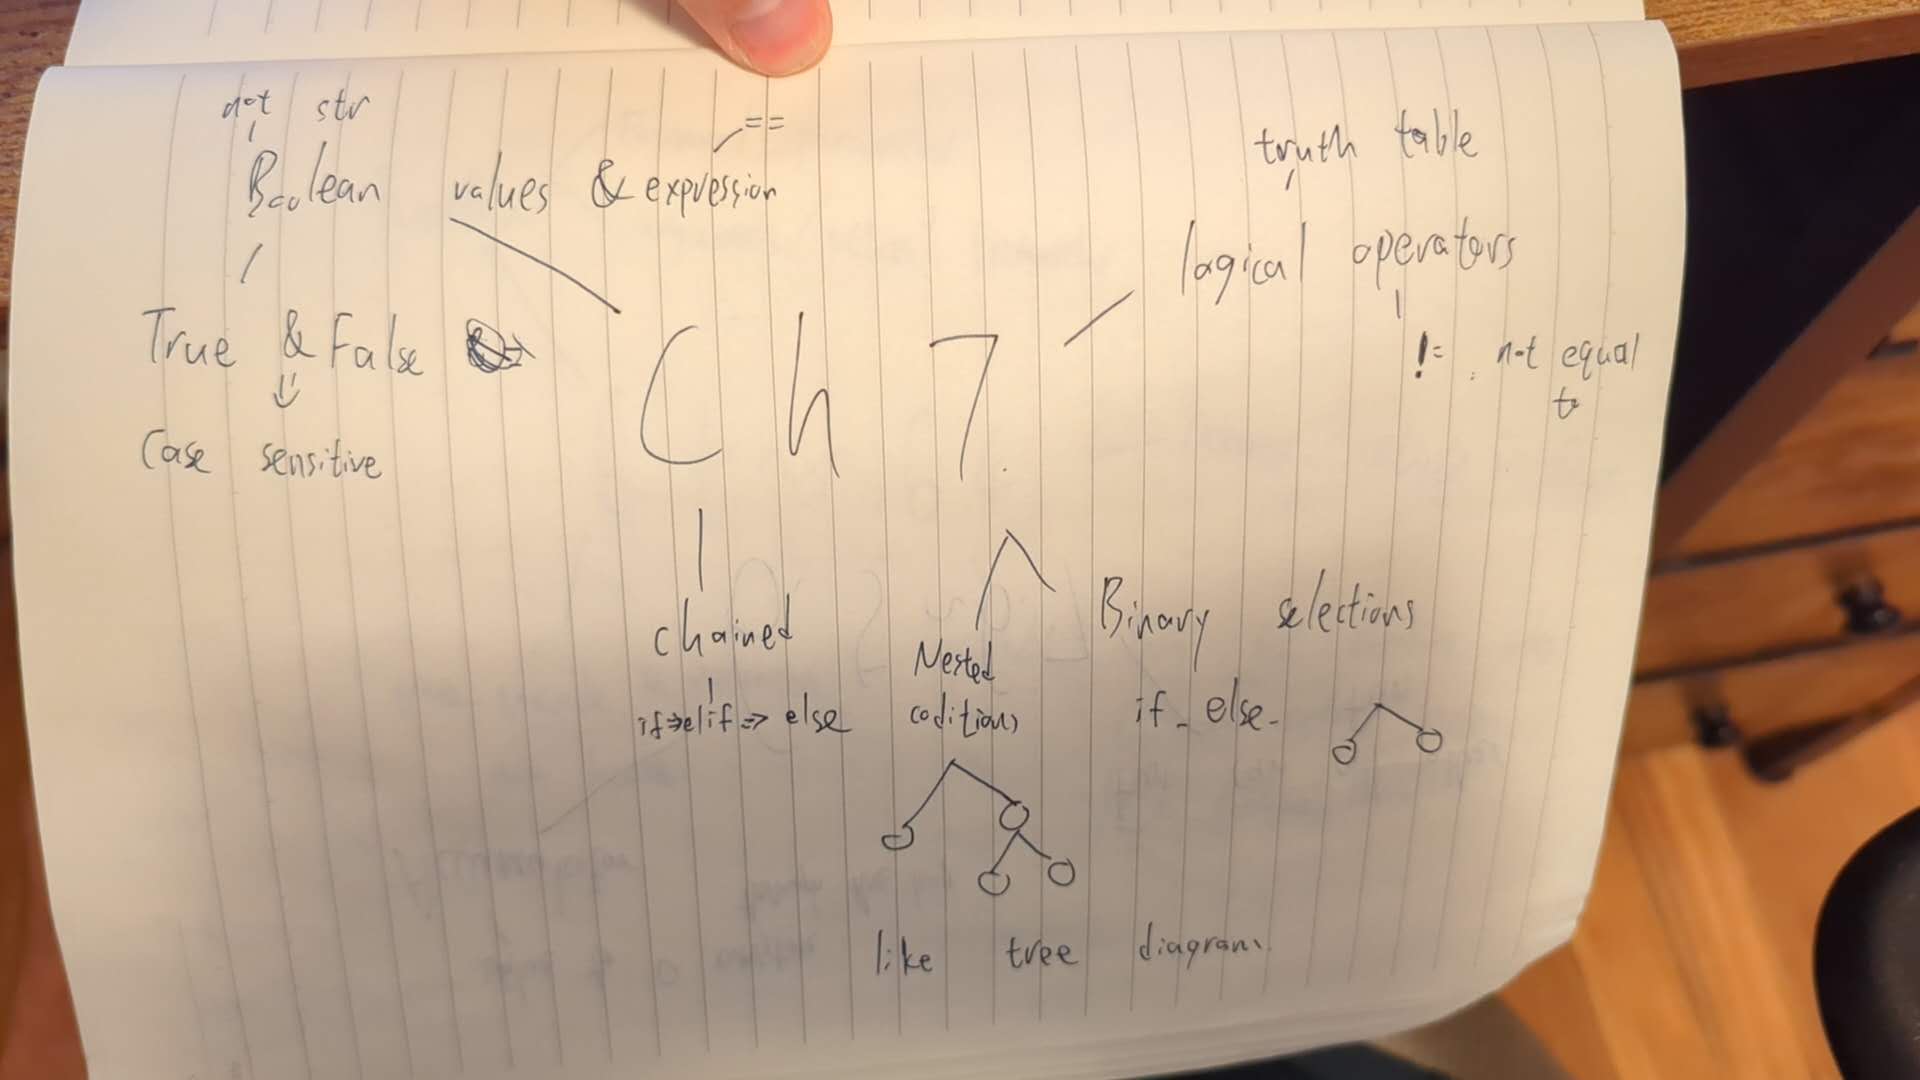 not str
==
Boolean values & expression
True & False
Case sensitive
truth table
logical operators
!= : not equal
to
Ch 7.
chained
if⇒elif⇒ else
Nested
coditions
Binary selections
if_ else_
like tree diagram.